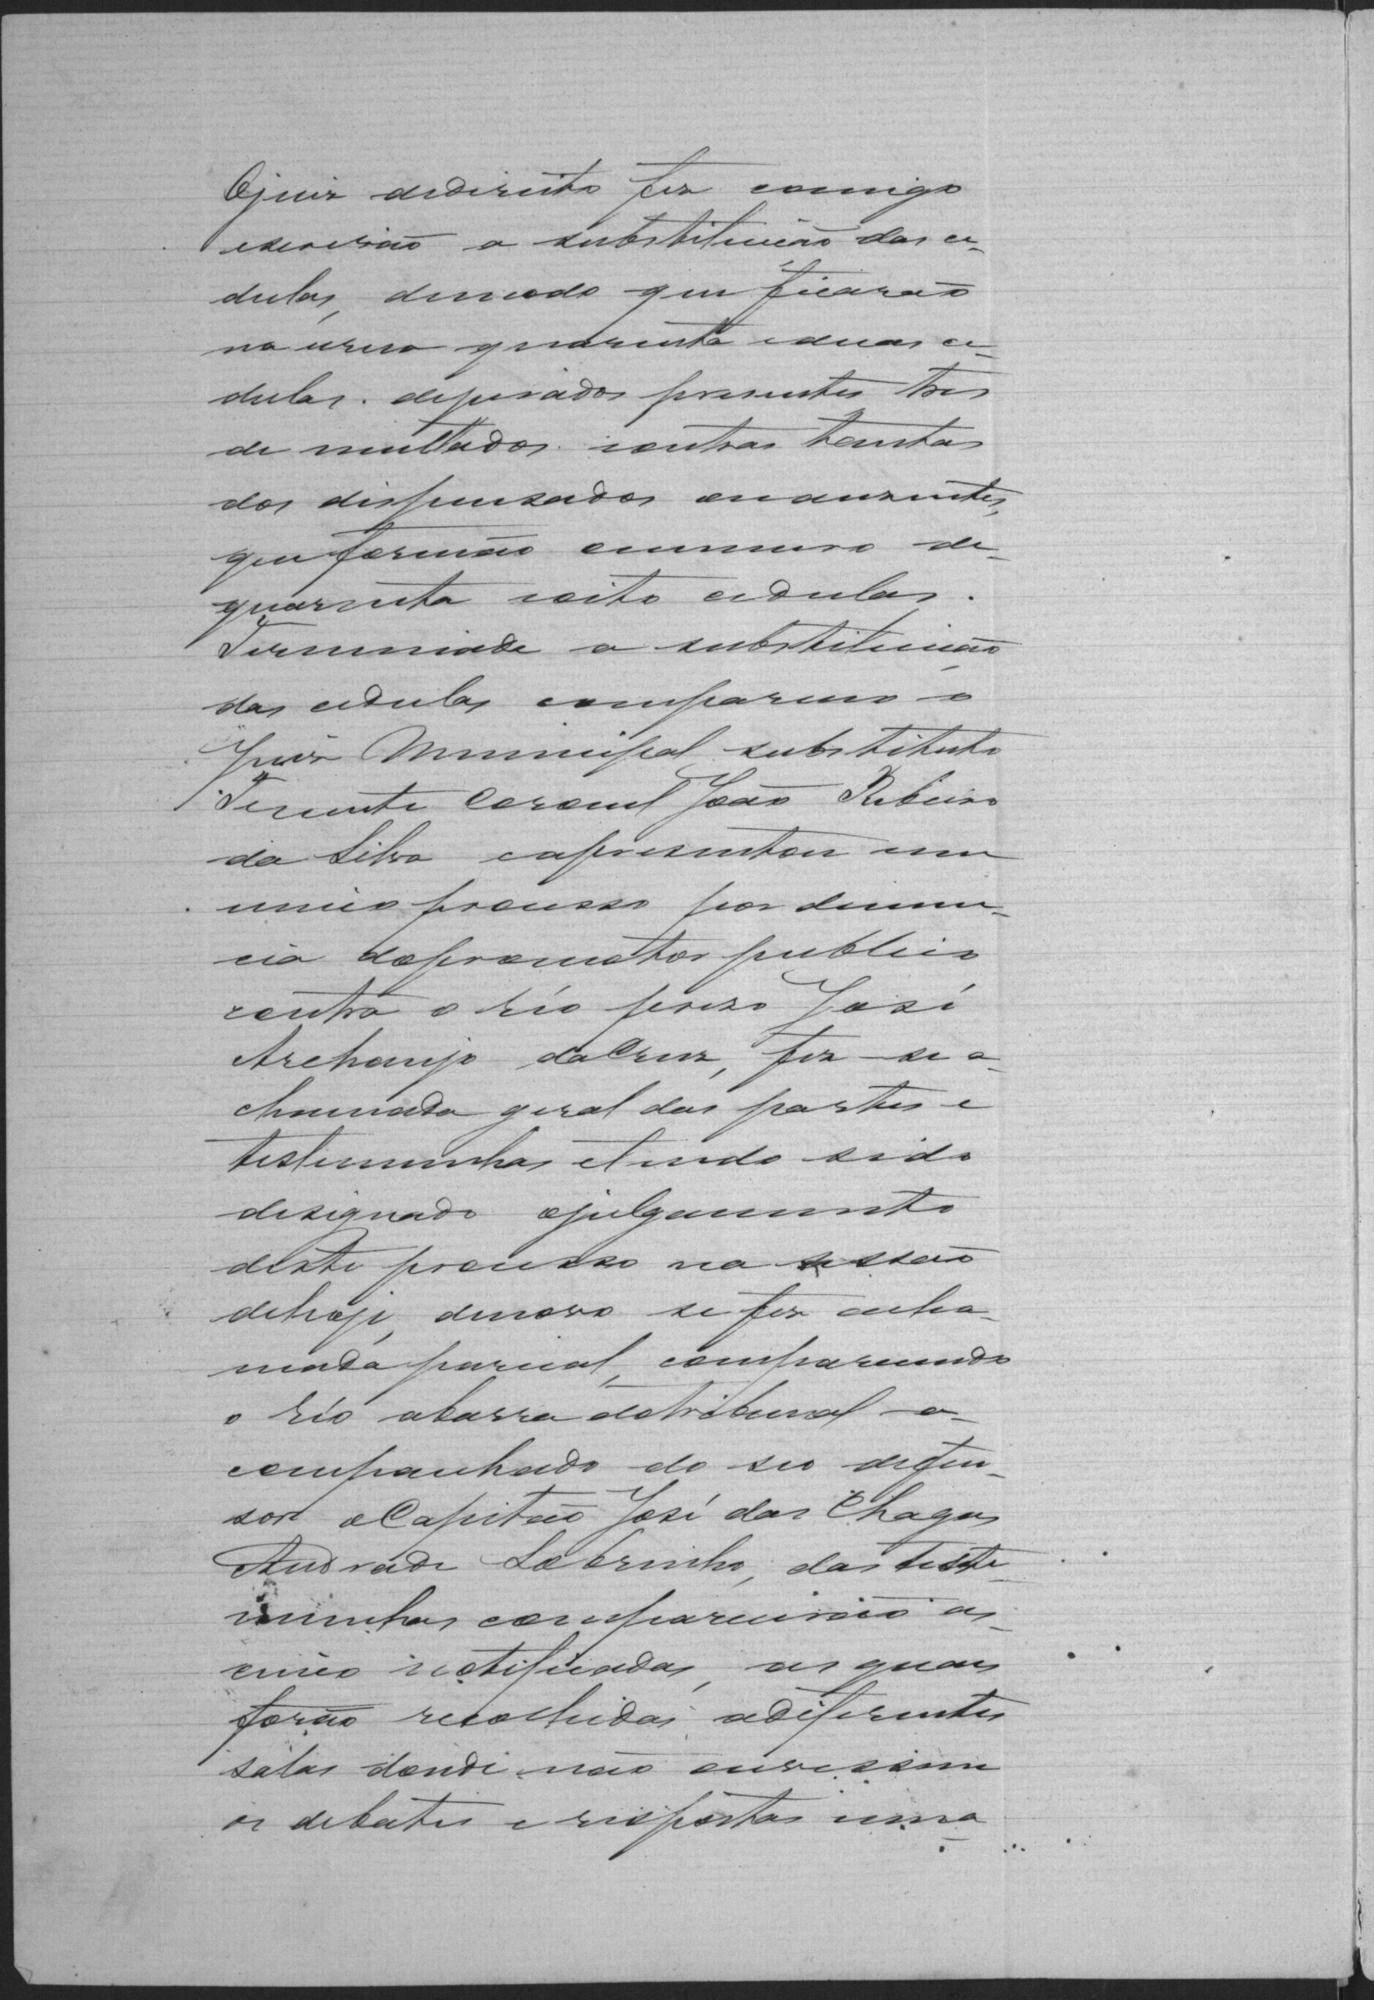 Ojuiz dedireito fez comigo
escrivão a substituição das ce-
dulas, demodo que ficarão
na urna quarenta eduas ce-
dulas. dejurados presentes tres
de multados. eoutras tantas
dos dispensados eauzentes,
que formão onumero de-
quarenta eoito cedulas.
Terminada a substituição
das cedulas compareceo o
Juiz Municipal substituto
Tenente Coronel João Ribeiro
da Silva eapresentou um
unico processo por denun-
cia dopromotor publico
contra o réo prezo José
Archanjo daCruz, fez-se a-
chamada geral das partes e
testemunhas etendo sido
designado ojulgamento
deste processo na sessão
dehoje, denovo se fez acha-
mada parcial, comparecendo
o réo abarra dotribunal a-
companhado do seo defen-
sor oCapitão José das Chagas
Andrade Sobrinho, das teste-
munhas comparecerão as-
cinco notificadas, as quaes
forão recolhidas adiferentes
salas donde não ouvissem
os debates e respostas uma